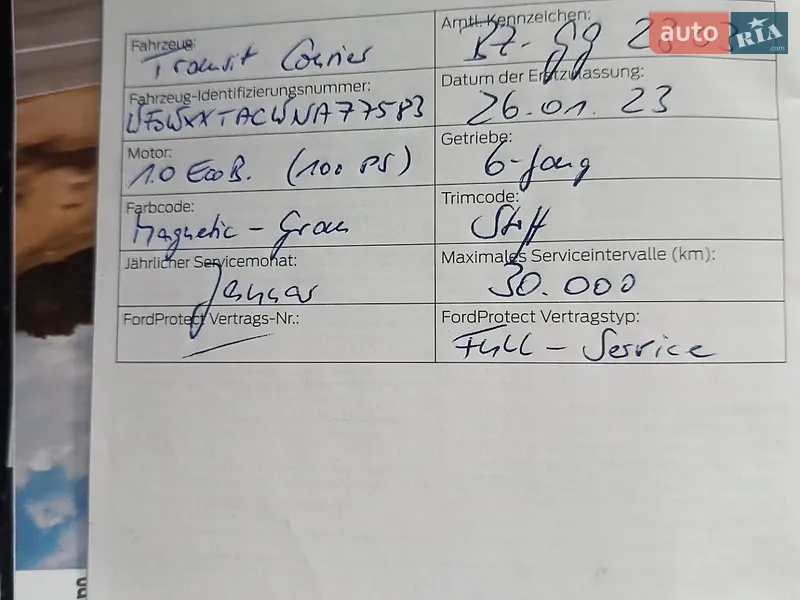 Fahrzeug:
Transit Courier
Amtl. Kennzeichen:
auto RIA .com
Fahrzeug-Identifizierungsnummer:
WF0WXXTACWNA77583
Datum der Erstzulassung:
26.01.23
Motor:
1.0 EcoB. (100 PS)
Getriebe:
6-Gang
Farbcode:
Magnetic-Grau
Trimcode:
Stoff
Jährlicher Servicemonat:
Januar
Maximales Serviceintervalle (km):
30.000
FordProtect Vertrags-Nr.:
FordProtect Vertragstyp:
Full-Service